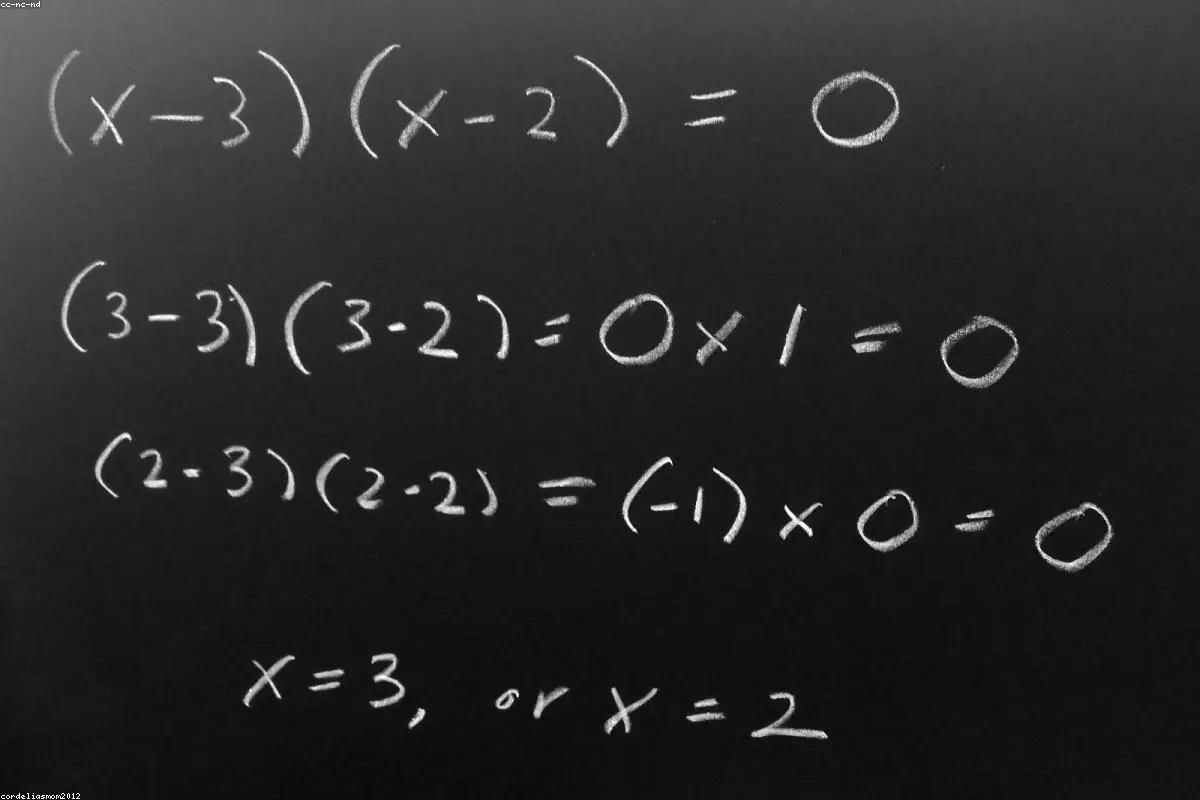 cc-nc-nd
(x-3)(x-2) = 0
(3-3)(3-2) = 0 x 1 = 0
(2-3)(2-2) = (-1) x 0 = 0
x = 3, or x = 2
cordeliasmom2012